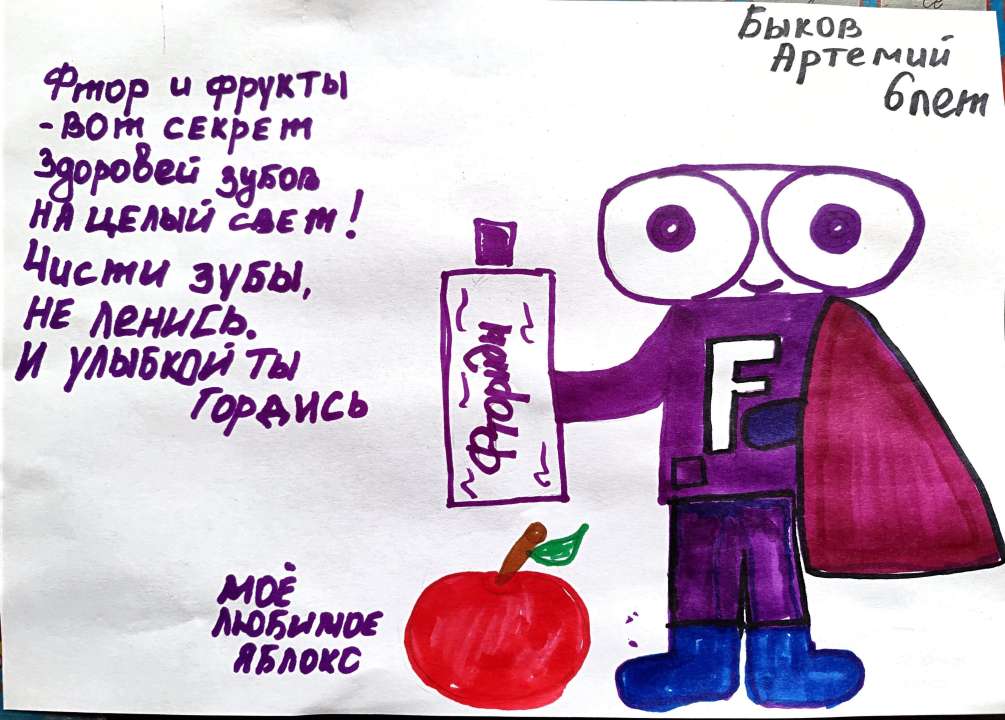 Быков
Артемий
6 лет
Фтор и фрукты
- вот секрет
Здоровей зубов
на целый свет!
Чисти зубы,
не ленись.
И улыбкой ты
гордись
Фторидин
F
моё
любимое
яблоко